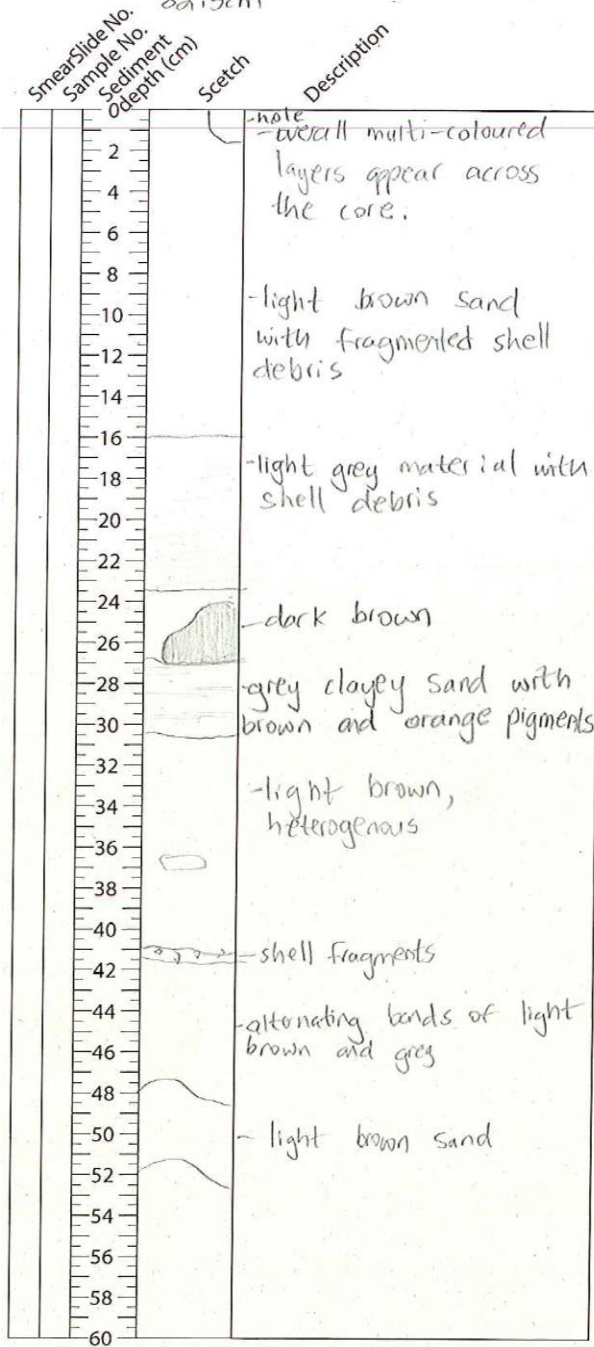 SmearSlide No.
Sample No.
Sediment
depth (cm)
Scetch
Description
0
2
4
6
8
10
12
14
16
18
20
22
24
26
28
30
32
34
36
38
40
42
44
46
48
50
52
54
56
58
60
-overall multi-coloured
layers appear across
the core.
-light brown sand
with fragmented shell
debris
-light grey material with
shell debris
-dark brown
-grey clayey sand with
brown and orange pigments
-light brown,
heterogenous
-shell fragments
-alternating bands of light
brown and grey
- light brown sand